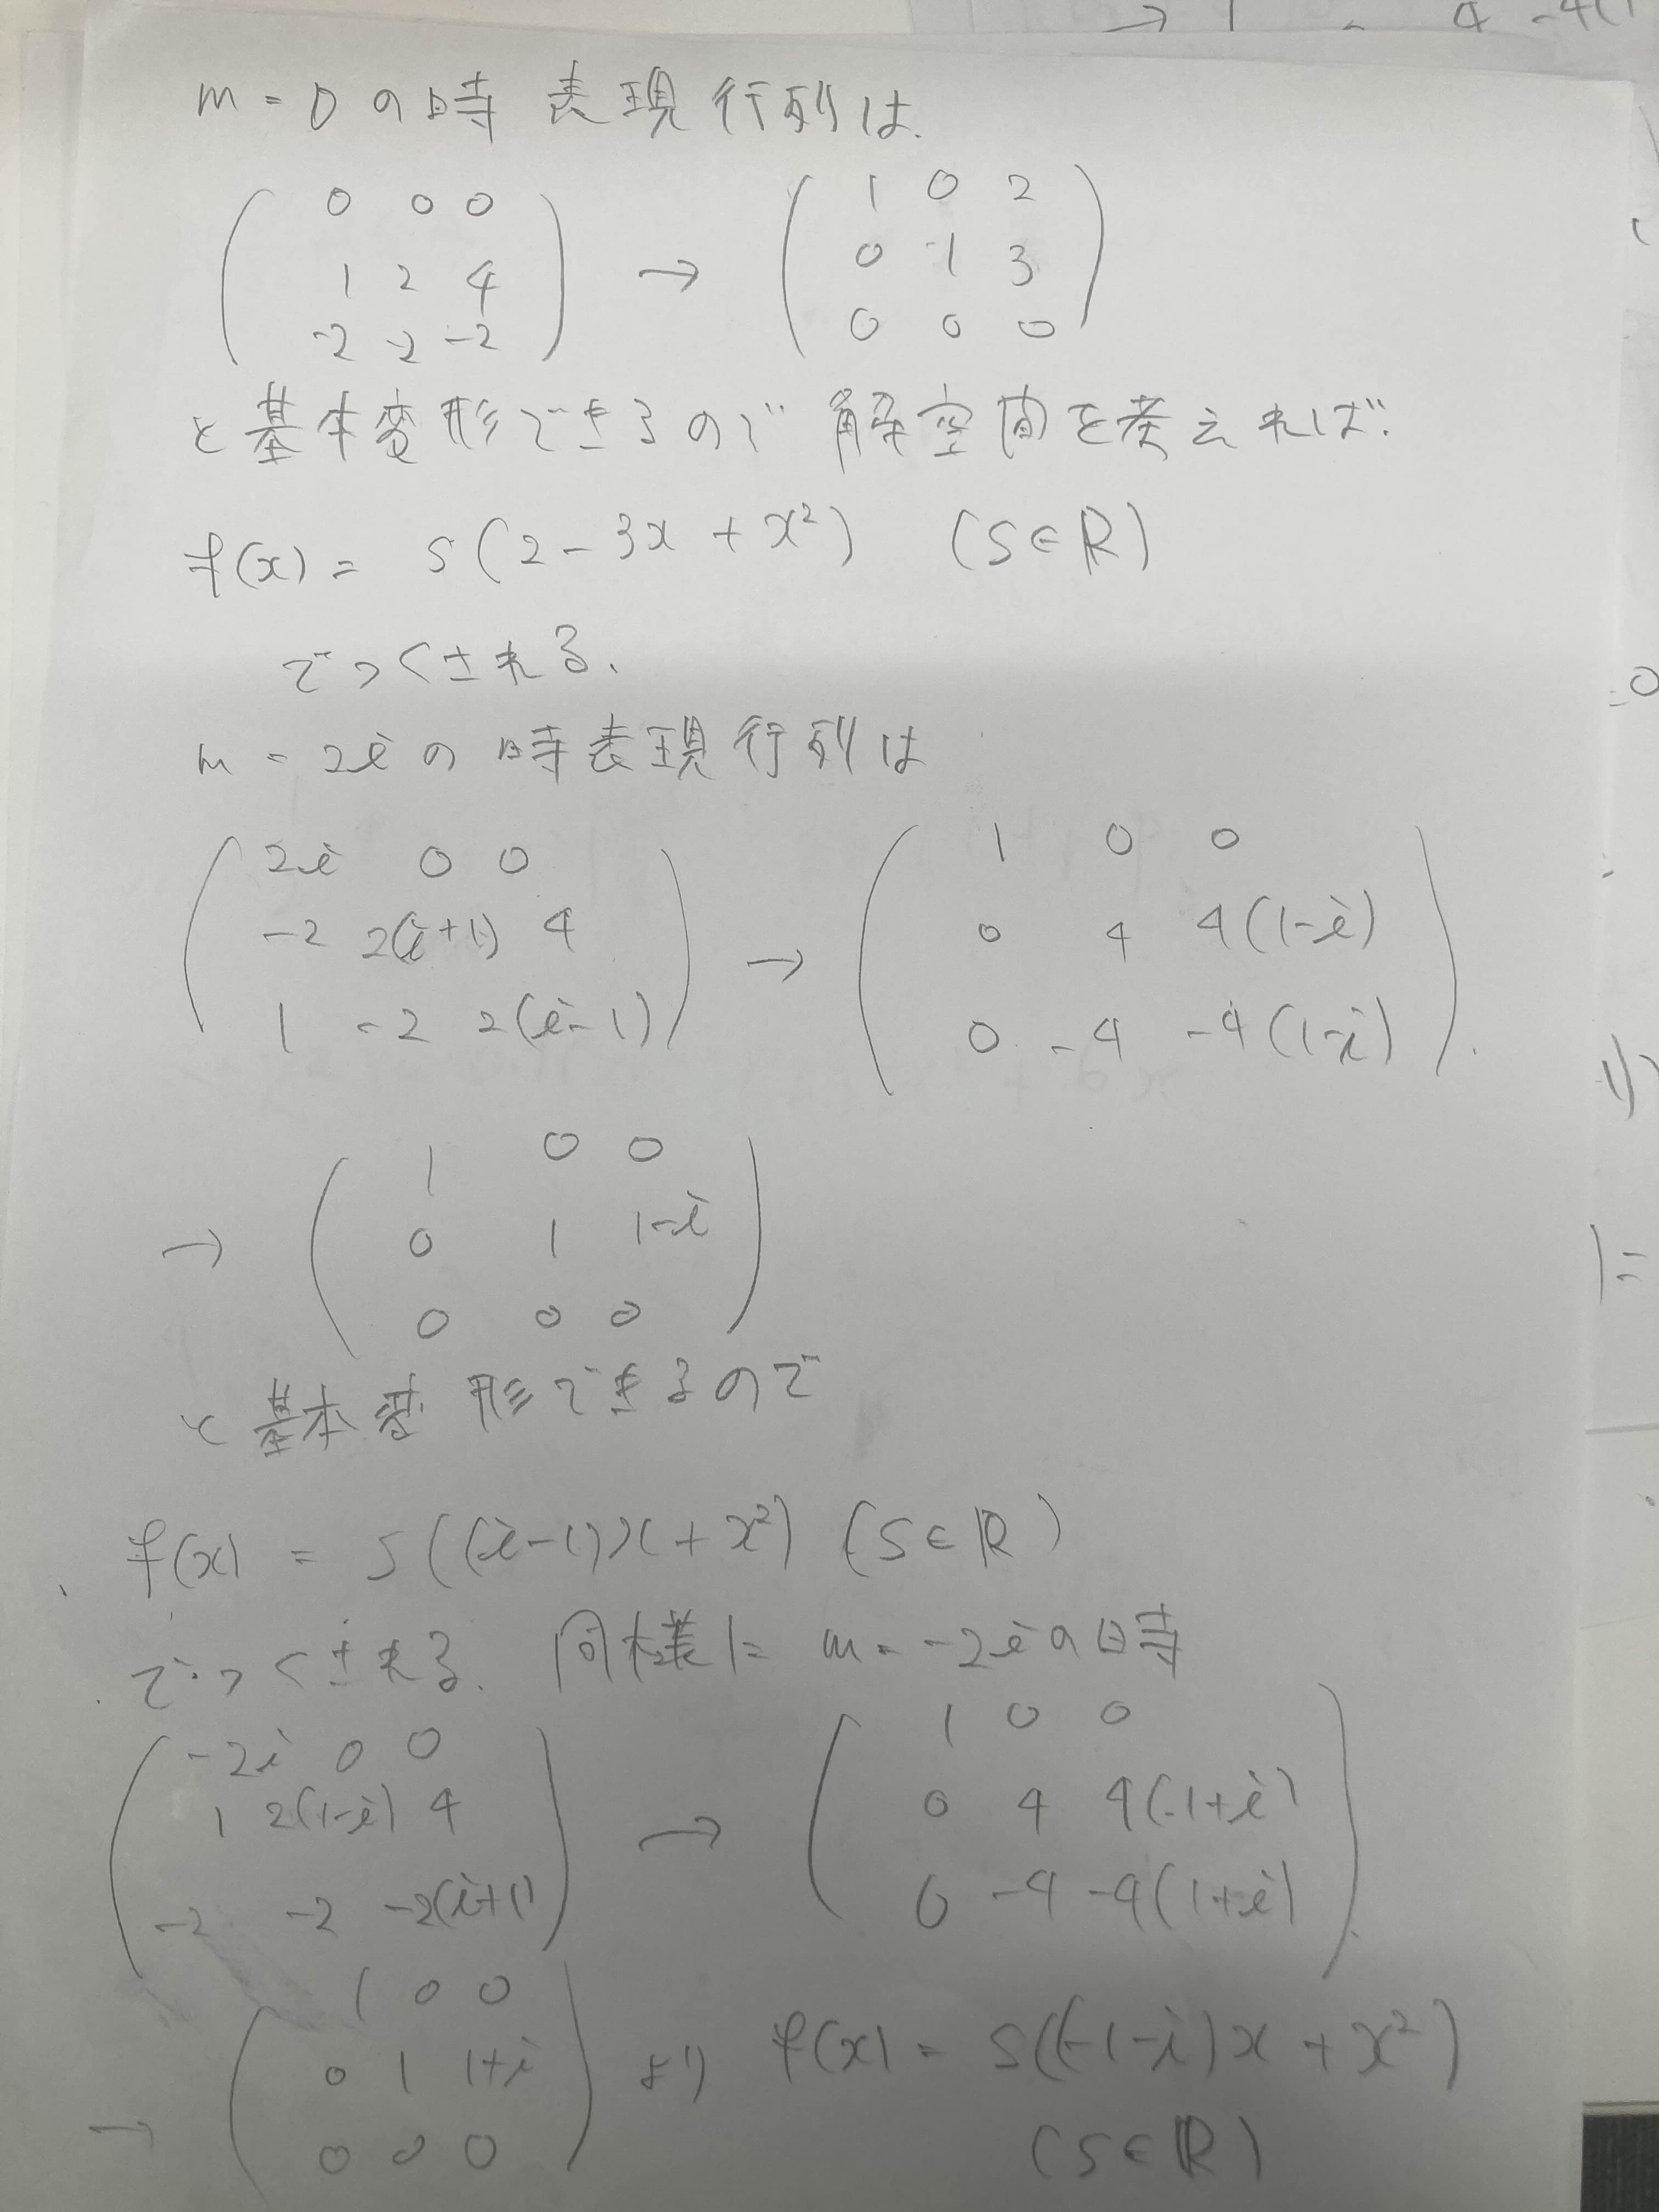 m = 0 の時 表現行列は.
( 0 0 0 ; 1 2 4 ; -2 -2 -2 ) → ( 1 0 2 ; 0 1 3 ; 0 0 0 )
と基本変形できるので 解空間を考えれば.
f(x) = s(2-3x+x²) (s∈ℝ)
でつくられる.
m = 2i の時表現行列は
( 2i 0 0 ; -2 2(i+1) 4 ; 1 -2 2(i-1) ) → ( 1 0 0 ; 0 4 4(1-i) ; 0 -4 -4(1-i) ).
→ ( 1 0 0 ; 0 1 1-i ; 0 0 0 )
と基本変形できるので
f(x) = s((i-1)x+x²) (s∈ℝ)
でつくられる. 同様に m = -2i の時
( -2i 0 0 ; 1 2(1-i) 4 ; -2 -2 -2(i+1) ) → ( 1 0 0 ; 0 4 4(1+i) ; 0 -4 -4(1+i) ).
→ ( 1 0 0 ; 0 1 1+i ; 0 0 0 ) より f(x) = s((-1-i)x+x²)
(s∈ℝ)